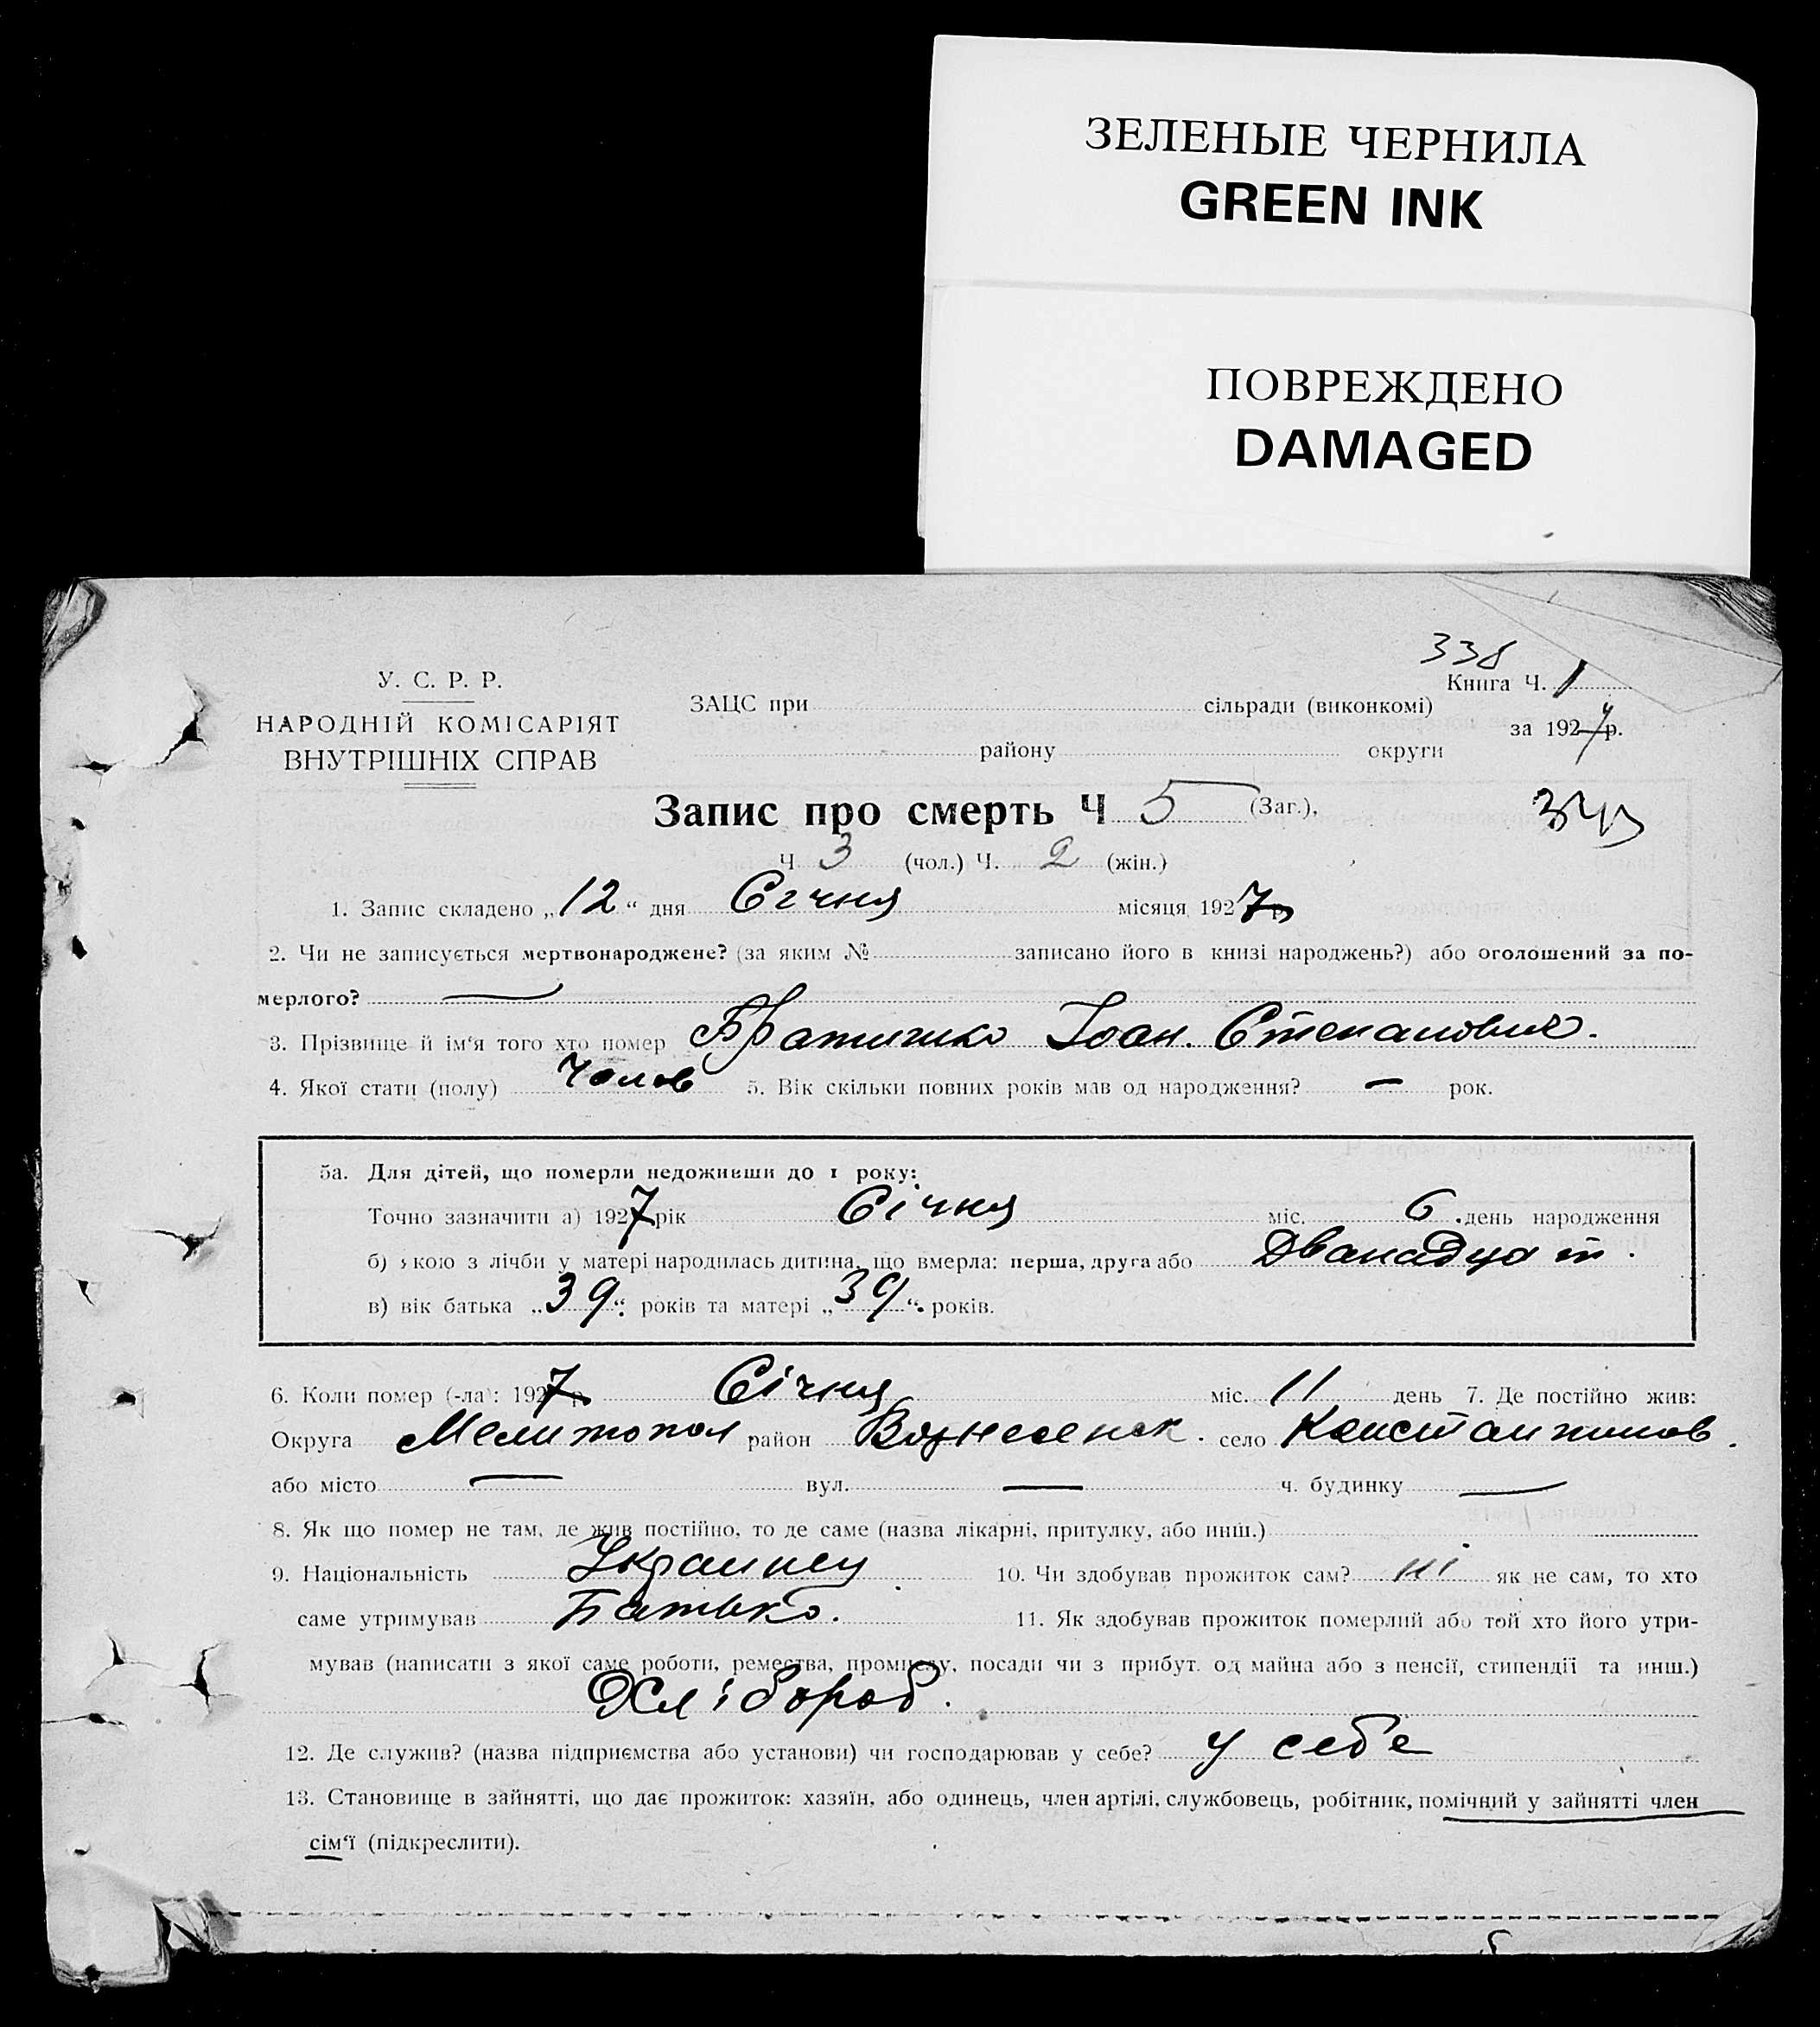 ЗЕЛЕНЫЕ ЧЕРНИЛА
GREEN INK
ПОВРЕЖДЕНО
DAMAGED
338
У. С. Р. Р.
НАРОДНІЙ КОМІСАРІЯТ
ВНУТРІШНІХ СПРАВ
ЗАЦС при сільради (виконкомі)
району округи
Книга Ч. 1
за 1927 р.
Запис про смерть Ч 5 (Заг.),
Ч 3 (чол.) Ч. 2 (жін.)
1. Запис складено „12“ дня Січня місяця 1927 р
2. Чи не записується мертвонароджене? (за яким № записано його в книзі народжень?) або оголошений за по-
мерлого? —
3. Прізвище й ім'я того хто помер Братишко Іоан. Степанович.
4. Якої стати (полу) Чолов 5. Вік скільки повних років мав од народження? — рок.
5а. Для дітей, що померли недоживши до 1 року:
Точно зазначити а) 1927 рік Січня міс. 6 день народження
б) якою з лічби у матері народилась дитина, що вмерла: перша, друга або Дванадцат.
в) вік батька „39“ років та матері „39“ років.
6. Коли помер (-ла): 1927 р Січня міс. 11 день 7. Де постійно жив:
Округа Мелитопол район Вознесенск. село Константинов.
або місто — вул. — ч. будинку —
8. Як що помер не там, де жив постійно, то де саме (назва лікарні, притулку, або инш.)
9. Національність Украинец 10. Чи здобував прожиток сам? ні як не сам, то хто
саме утримував Батько. 11. Як здобував прожиток померлий або той хто його утри-
мував (написати з якої саме роботи, ремества, промислу, посади чи з прибут. од майна або з пенсії, стипендії та инш.)
Хлібороб.
12. Де служив? (назва підприємства або установи) чи господарював у себе? у себе
13. Становище в зайнятті, що дає прожиток: хазяїн, або одинець, член артілі, службовець, робітник, помічний у зайнятті член
сім'ї (підкреслити).